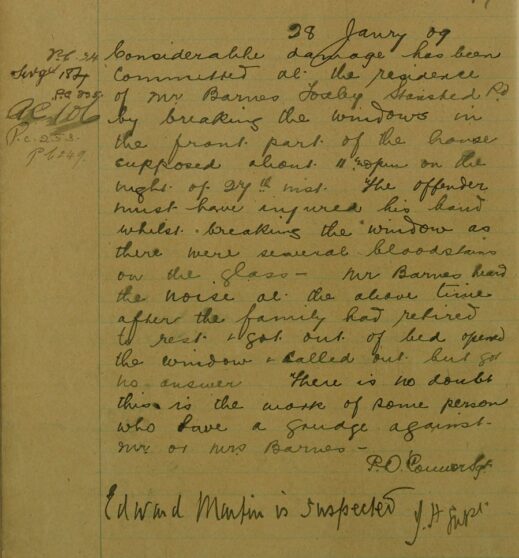 28 Janry 09
P.C. 24
Sergt 184
P.C. 835
P.C. 253
P.C. 249
Considerable damage has been
Committed at the residence
of Mr Barnes Stansted Rd
by breaking the windows in
the front part of the house
supposed about 11 pm on the
night of 27th inst. The offender
must have injured his hand
whilst breaking the window as
there were several bloodstains
on the glass – Mr Barnes heard
the noise at the above time
after the family had retired
to rest & got out of bed opened
the window & called out but got
no answer There is no doubt
this is the work of some person
who have a grudge against
Mr or Mrs Barnes –
P.O. Connor Sgt
Edward Martin is suspected
J. H Supt.